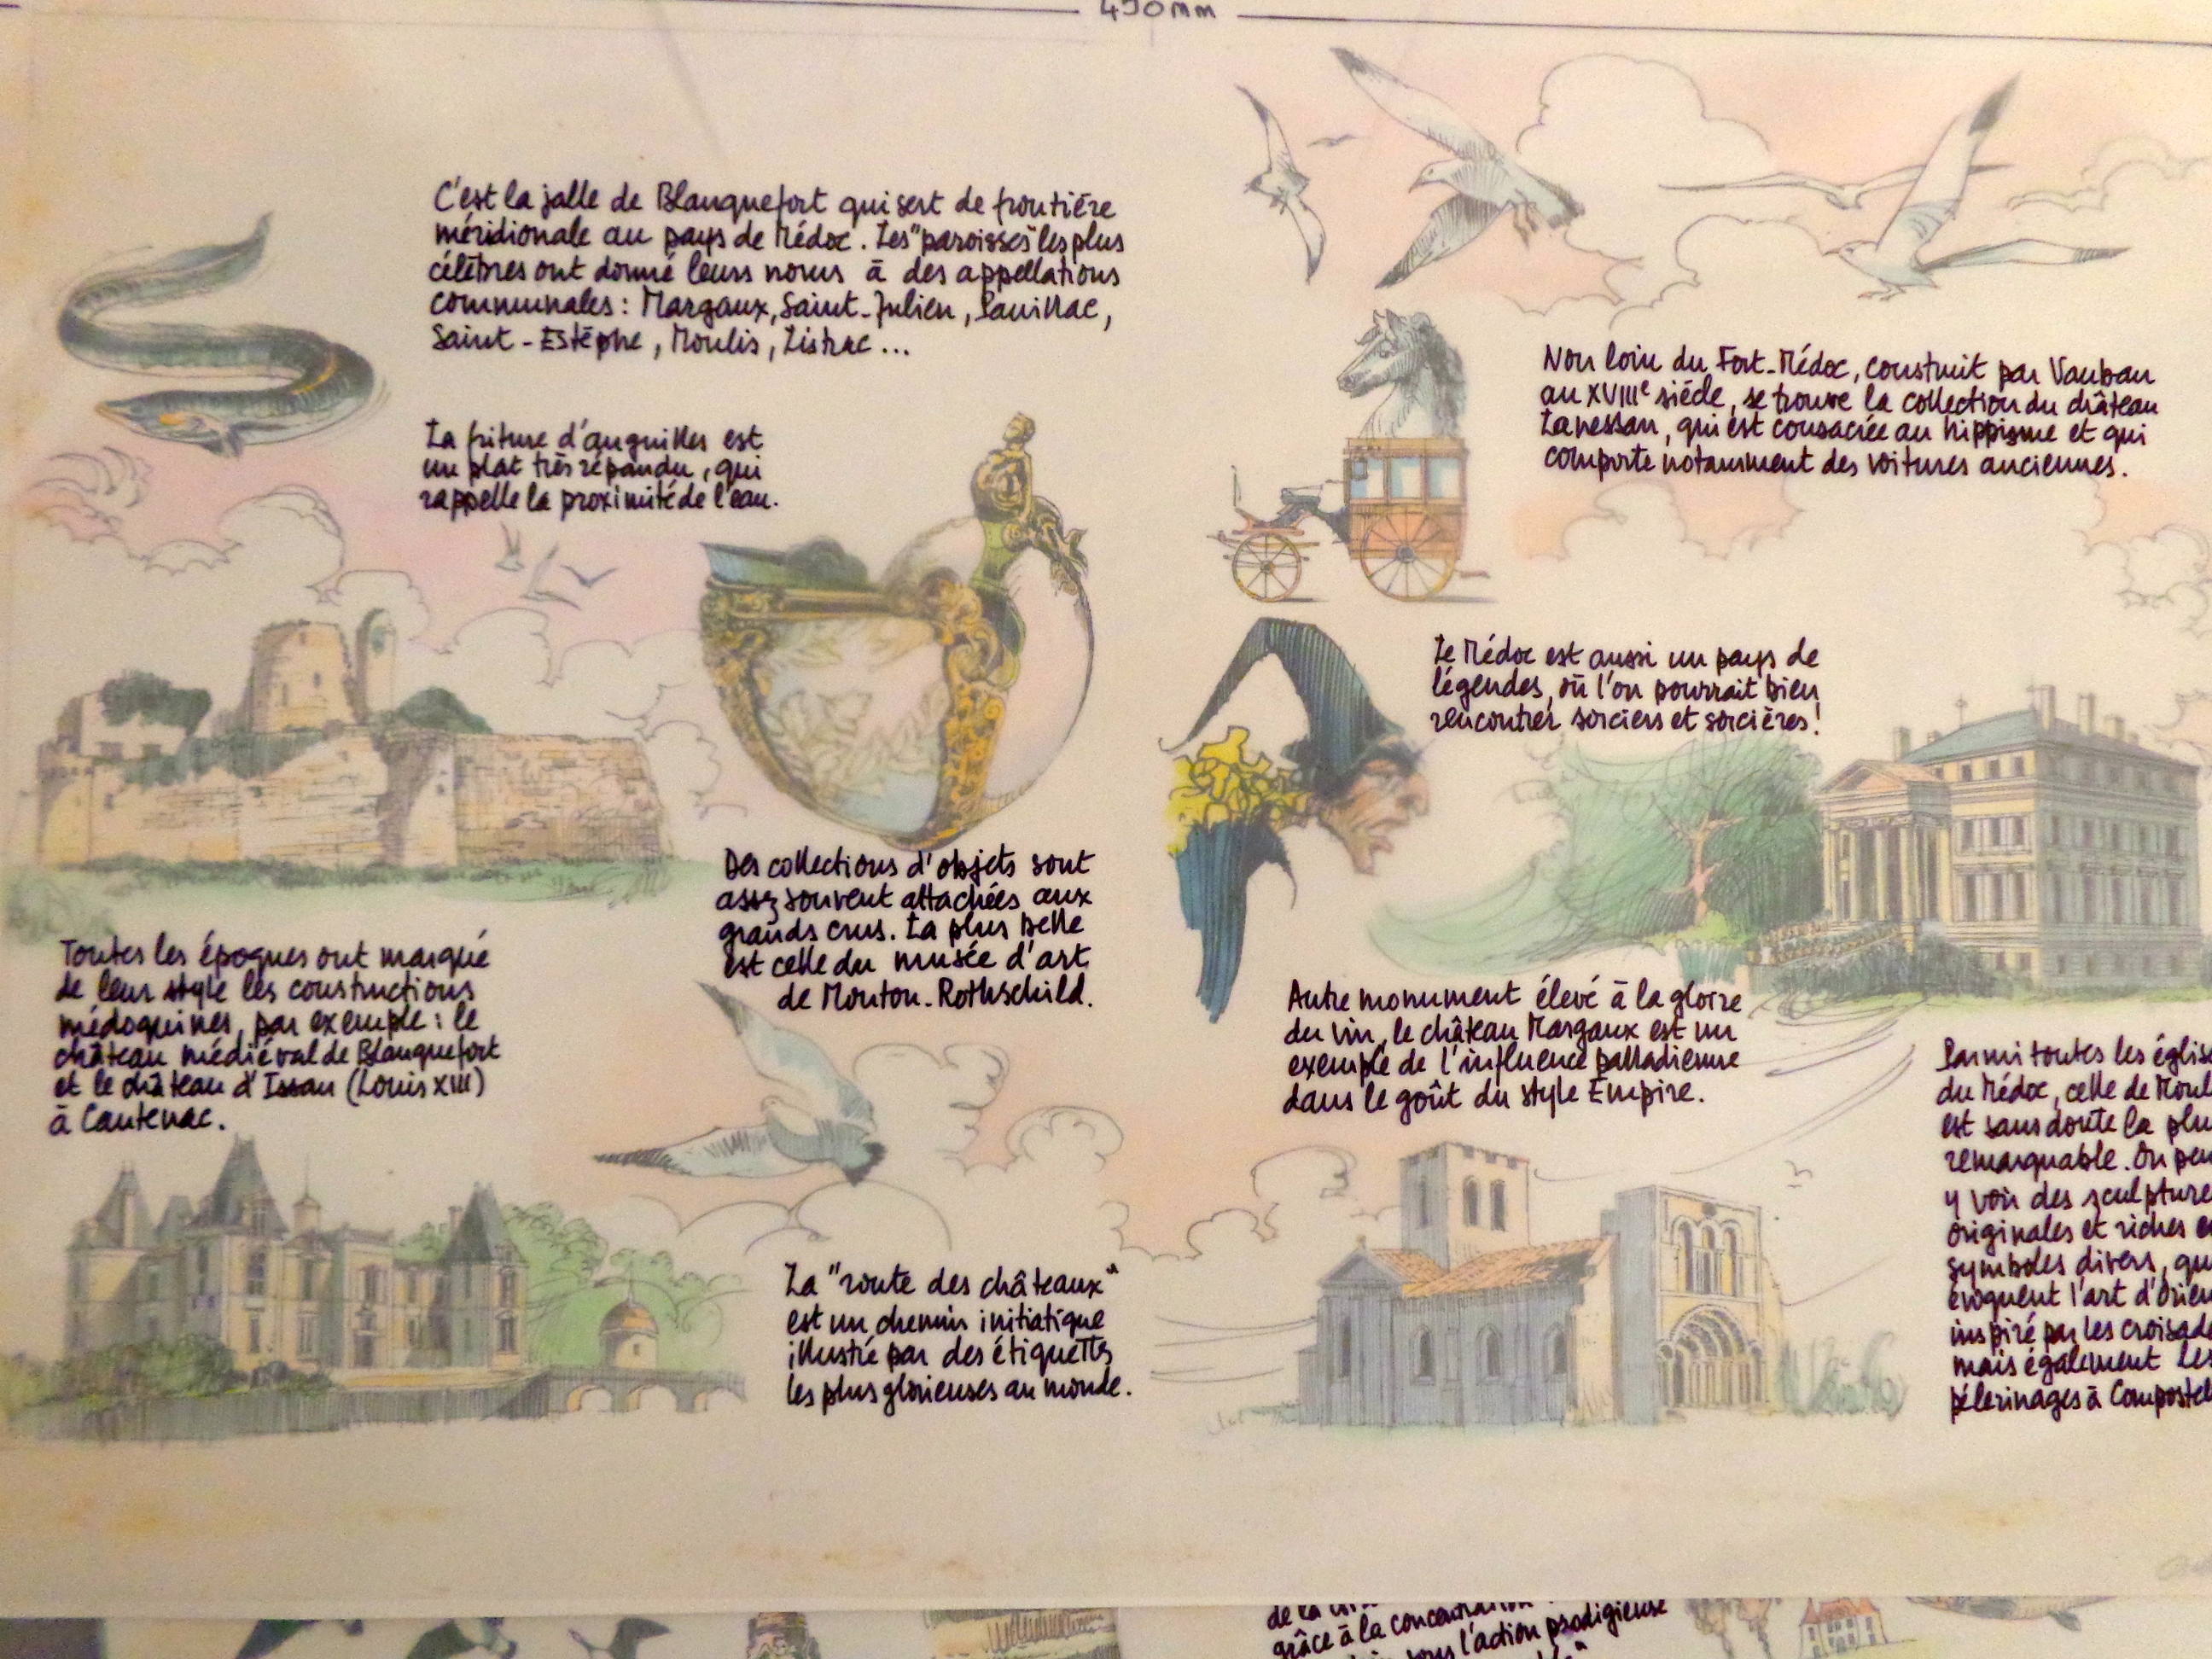 450mm
C'est la jalle de Blanquefort qui sert de frontière
méridionale au pays de Médoc. Les "paroisses" les plus
célèbres ont donné leurs noms à des appellations
communales : Margaux, Saint-Julien, Pauillac,
Saint-Estèphe, Moulis, Listrac ...
La friture d'anguilles est
un plat très répandu, qui
rappelle la proximité de l'eau.
Non loin du Fort-Médoc, construit par Vauban
au XVIIIe siècle, se trouve la collection du château
Lanessan, qui est consacrée au hippisme et qui
comporte notamment des voitures anciennes.
Le Médoc est aussi un pays de
légendes, où l'on pourrait bien
rencontrer sorciers et sorcières !
Des collections d'objets sont
assez souvent attachées aux
grands crus. La plus belle
est celle du musée d'art
de Mouton-Rothschild.
Toutes les époques ont marqué
de leur style les constructions
médoquines, par exemple : le
château médiéval de Blanquefort
et le château d'Issan (Louis XIII)
à Cantenac.
Autre monument élevé à la gloire
du vin, le château Margaux est un
exemple de l'influence palladienne
dans le goût du style Empire.
La "route des châteaux"
est un chemin initiatique
illustré par des étiquettes
les plus glorieuses au monde.
Parmi toutes les églis
du Médoc, celle de Moul
est sans doute la plu
remarquable. On peu
y voir des sculpture
originales et riches e
symboles divers, qu
évoquent l'art d'Orien
inspiré par les croisad
mais également les
pélerinages à Compostel
de la
grâce à la concentration
sous l'action prodigieuse